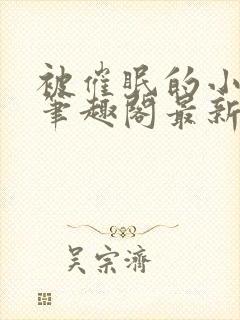 被催眠的小
笔趣阁最新
吴宗济